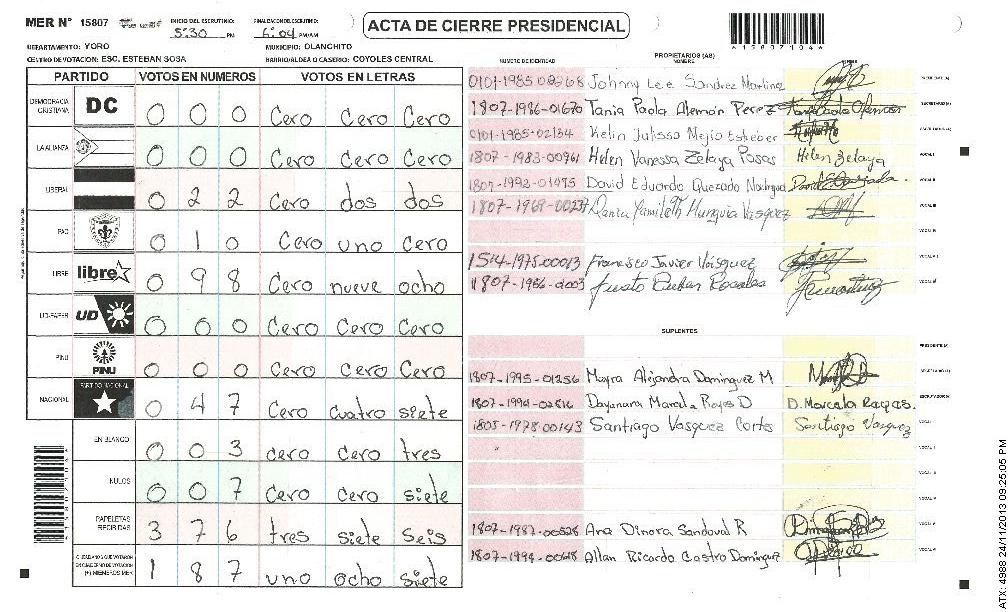 MER N° 15807
INICIO DEL ESCRUTINIO: 5:30 PM
FINALIZACION DEL ESCRUTINIO: 6:04 PM/AM
ACTA DE CIERRE PRESIDENCIAL
*158071044*
DEPARTAMENTO: YORO
MUNICIPIO: OLANCHITO
CENTRO DE VOTACION: ESC. ESTEBAN SOSA
BARRIO/ALDEA O CASERIO: COYOLES CENTRAL
PARTIDO VOTOS EN NUMEROS VOTOS EN LETRAS
DEMOCRACIA CRISTIANA DC 0 0 0 Cero Cero Cero
LA ALIANZA 0 0 0 Cero Cero Cero
LIBERAL 0 2 2 Cero dos dos
PAC 0 1 0 Cero uno Cero
LIBRE libre 0 9 8 Cero nueve ocho
UD-FAPER UD 0 0 0 Cero Cero Cero
PINU PINU 0 0 0 Cero Cero Cero
NACIONAL PARTIDO NACIONAL 0 4 7 Cero Cuatro siete
EN BLANCO 0 0 3 cero Cero tres
NULOS 0 0 7 Cero Cero siete
PAPELETAS RECIBIDAS 3 7 6 tres siete Seis
CIUDADANOS QUE VOTARON EN CUADERNO DE VOTACION (+) MIEMBROS MER 1 8 7 uno ocho siete
PROPIETARIOS (AS)
NUMERO DE IDENTIDAD NOMBRE FIRMA
0101-1985-02268 Johnny Lee Sandrez Martinez PRESIDENTE (A)
1807-1986-01670 Tania Paola Alemán Perez SECRETARIO (A)
0101-1985-02134 Kelin Julissa Mejia ESCRUTADOR (A)
1807-1983-00961 Helen Vanessa Zelaya Posas Helen Zelaya VOCAL I
1807-1992-01495 David Eduardo Quezada VOCAL II
Dania Yamileth Munguia Vasquez VOCAL III
1514-1975-00013 Francisco Javier Vasquez
SUPLENTES
PRESIDENTE (A)
1807-1995-01256 Mayra Alejandra Dominguez M SECRETARIO (A)
1807-1994-02816 Dayanara Marcela Reyes D D. Marcela ESCRUTADOR (A)
1805-1978-00143 Santiago Vasquez Cortes Santiago Vasquez VOCAL I
1807-1987-00528 Ana Dinora Sandoval R
Allan Ricardo Castro Dominguez
ATX: 4988 24/11/2013 09:25:05 PM